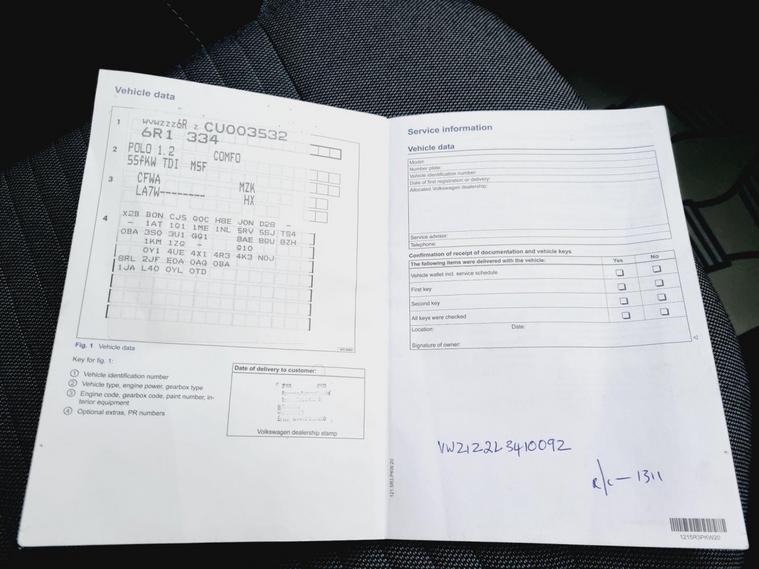 Vehicle data
1 WVWZZZ6R Z CU003532
6R1 334
2 POLO 1.2 COMFO
55FKW TDI M5F
3 CFWA MZK
LA7W-------- HX
4 X2B BON CJS GOC H8E JON D2B -
- 1AT 1Q1 1ME 1NL 5RV 5SJ TS4
0BA 3S0 3U1 GG1 8AE B0U 8ZH
1KM 1ZQ - Q10
0Y1 4UE 4X1 4R3 4K3 NOJ
8RL 2JF EOA 0AG 0BA
1JA L40 0YL 0TD
Fig. 1 Vehicle data
Key for fig. 1:
1 Vehicle identification number
2 Vehicle type, engine power, gearbox type
3 Engine code, gearbox code, paint number, in-
terior equipment
4 Optional extras, PR numbers
Date of delivery to customer:
Volkswagen dealership stamp
Service information
Vehicle data
Model:
Number plate:
Vehicle identification number:
Date of first registration or delivery:
Allocated Volkswagen dealership:
Service advisor:
Telephone:
Confirmation of receipt of documentation and vehicle keys
The following items were delivered with the vehicle: Yes No
Vehicle wallet incl. service schedule
First key
Second key
All keys were checked
Location: Date:
Signature of owner:
VWZ1Z2L3410092
R/C - 1311
121.5R3.PKW.20
1215R3PKW20